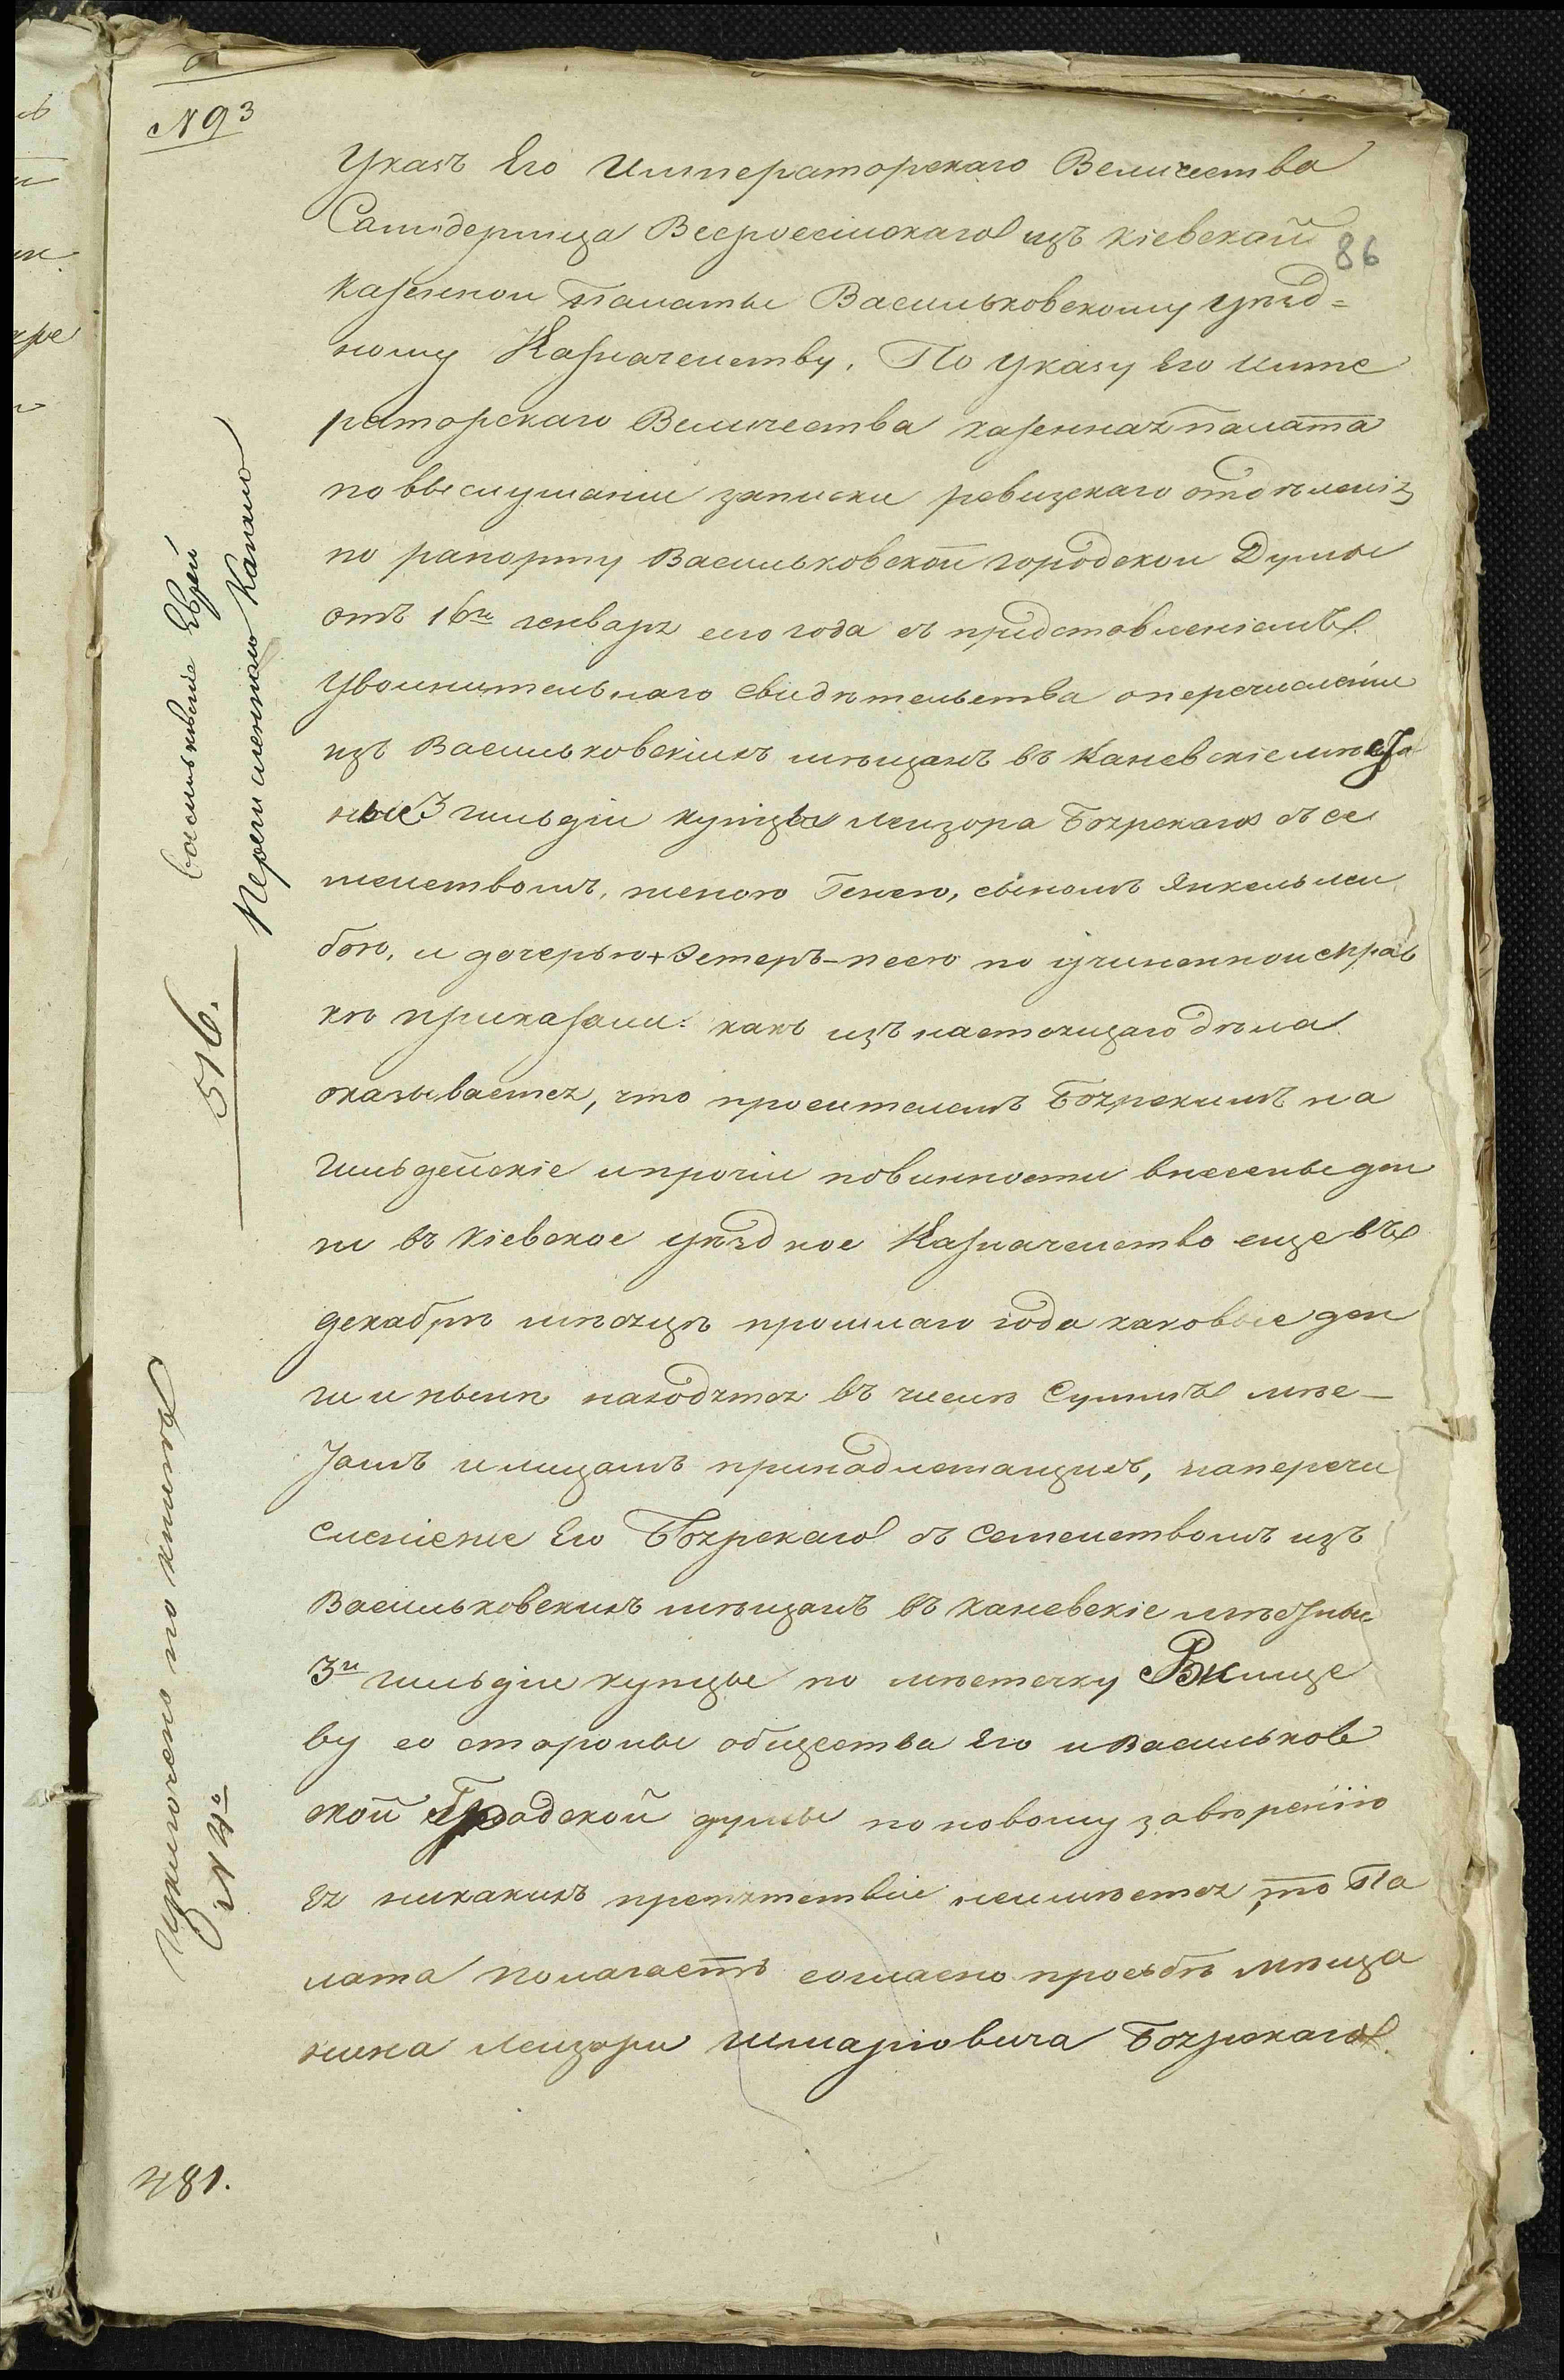 № 93
86
Указъ Его Императорскаго Величества
Самодержца Всеросссійскаго изъ Кіевской
Казенной Палаты Васильковскому Уѣзд=
ному Казначейству. По Указу Его Импе
раторскаго Величества казенная палата
по выслушаніи записки ревизскаго отдѣленія
по рапорту Васильковской городской Думы
отъ 16го генваря сего года съ представленіемъ
Увольнительнаго свидѣтельства о перечисленіи
изъ Васильковскихъ мѣщанъ въ Каневскіе мѣст
ные 3 гильдіи купцы Лейзора Боярскаго съ се
мействомъ, женою Генею, сыномъ Янкель Лей
бою, и дочерью Эстеръ-Песею по учиненной справ
кѣ приказали: какъ изъ настоящаго дѣла
оказывается, что просителемъ Боярскимъ на
гильдейскіе и прочіи повинности внесены ден
ги въ Кіевское уѣздное Казначейство еще въ
декабрѣ мѣсяцѣ прошлаго года каковые ден
ги и нынѣ находятся въ числѣ Суммъ мѣс-
тамъ и лицамъ принадлежащихъ, на перечи
сленіе Его Боярскаго съ семействомъ изъ
Васильковскихъ мѣщанъ въ каневскіе мѣстные
3й гильдіи купцы по мѣстечку
ву со стороны общества Его и Васильков
ской Градской думы по новому завѣренію
Ея никакихъ препятствіи неимѣется, то Па
лата полагаетъ согласно просьбѣ мѣща
нина Лейзори Шмаріовича Боярскаго
Васильковскіе Евреи
Перечисленнаго Каплю
516.
Исключено по книгѣ
№ 4о
481.